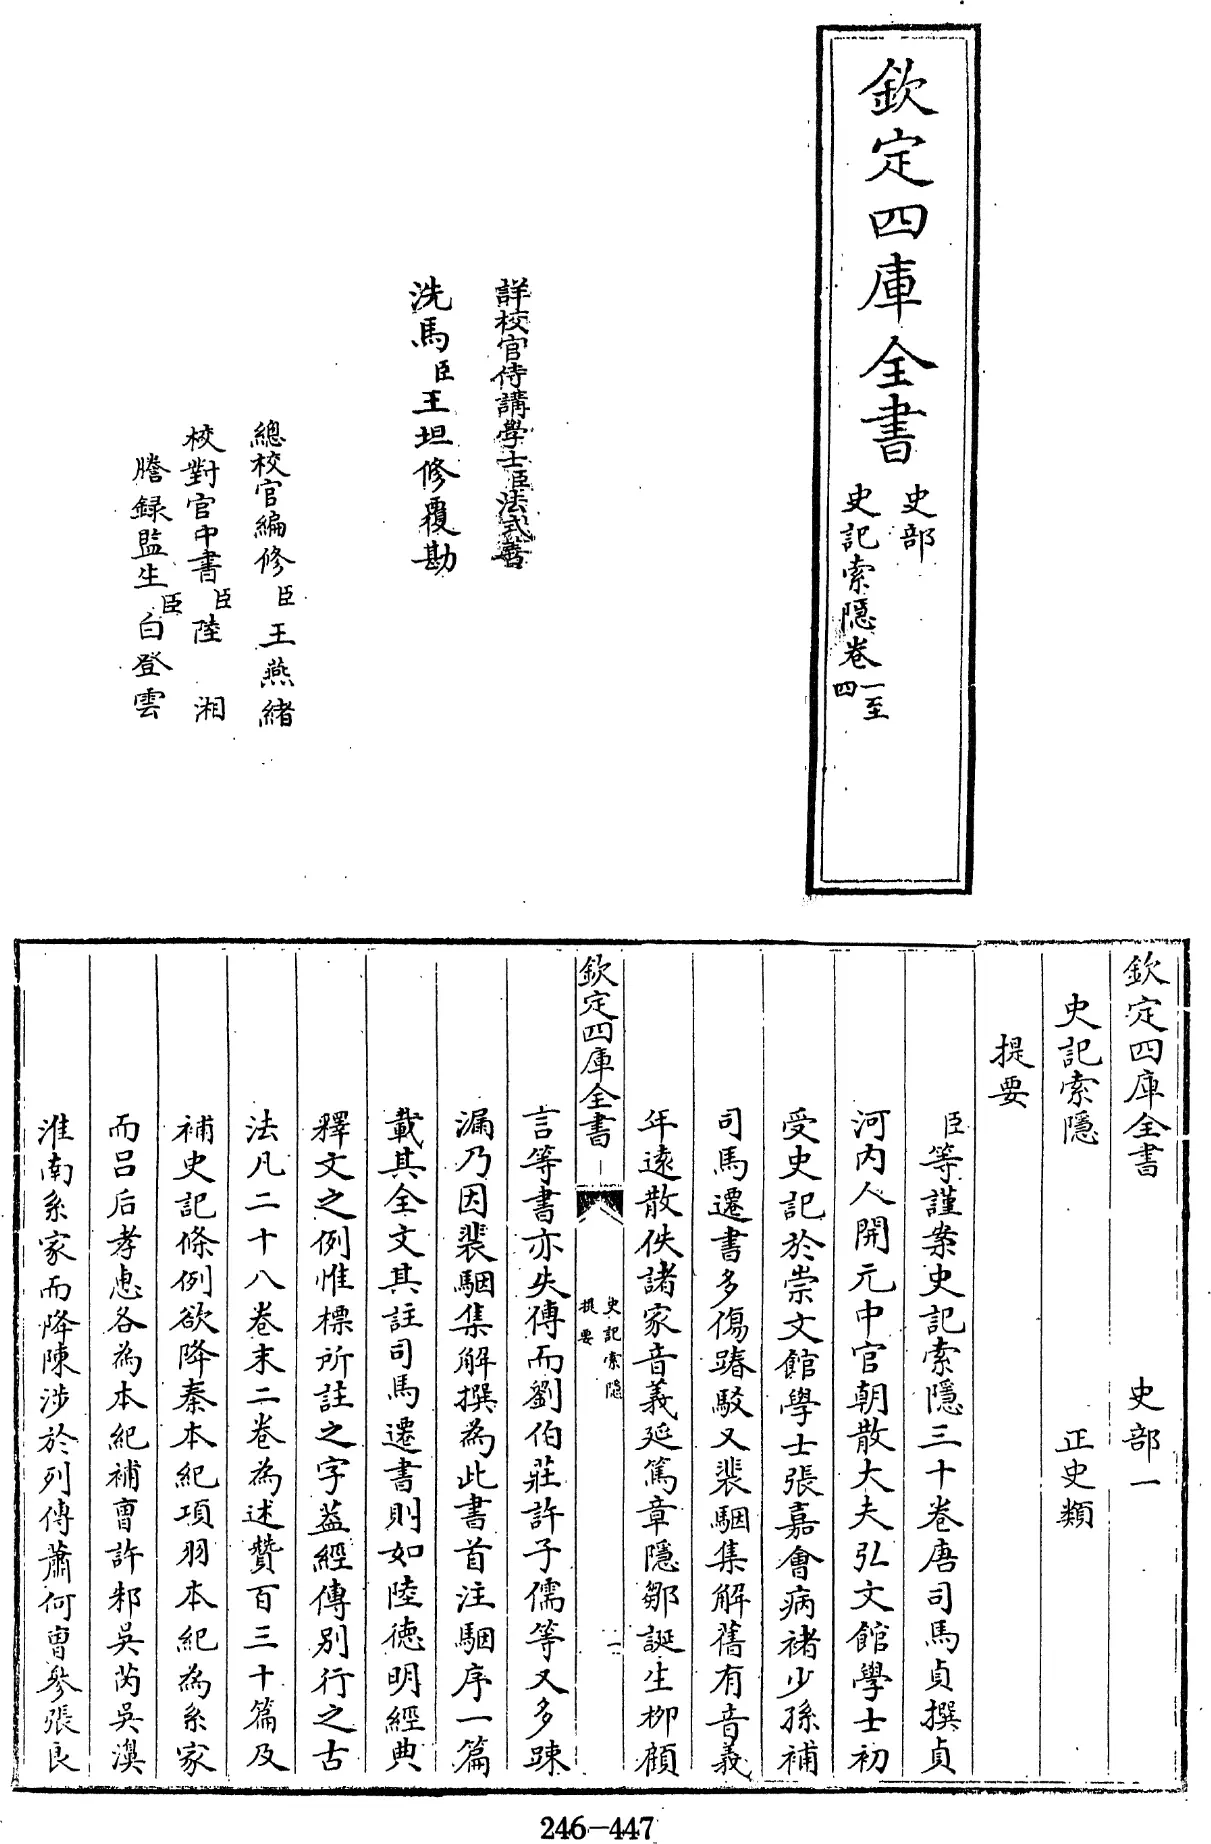 欽定四庫全書
史部
史記索隱卷一至四
詳校官侍講學士臣法式善
洗馬臣王坦修覆勘
總校官編修臣王燕緒
校對官中書臣陸湘
謄録監生臣白登雲
欽定四庫全書 史部一
史記索隱 正史類
提要
臣等謹案史記索隱三十卷唐司馬貞撰貞
河内人開元中官朝散大夫弘文館學士初
受史記於崇文館學士張嘉會病褚少孫補
司馬遷書多傷踳駁又裴駰集解舊有音義
年遠散佚諸家音義延篤章隱鄒誕生柳顧
欽定四庫全書
史記索隱
提要
一
言等書亦失傳而劉伯莊許子儒等又多踈
漏乃因裴駰集解撰為此書首注駰序一篇
載其全文其註司馬遷書則如陸徳明經典
釋文之例惟標所註之字葢經傳别行之古
法凡二十八卷末二卷為述贊百三十篇及
補史記條例欲降秦本紀項羽本紀為系家
而吕后孝惠各為本紀補曹許邾吳芮吳濞
淮南系家而降陳涉於列傳蕭何曹參張良
246-447